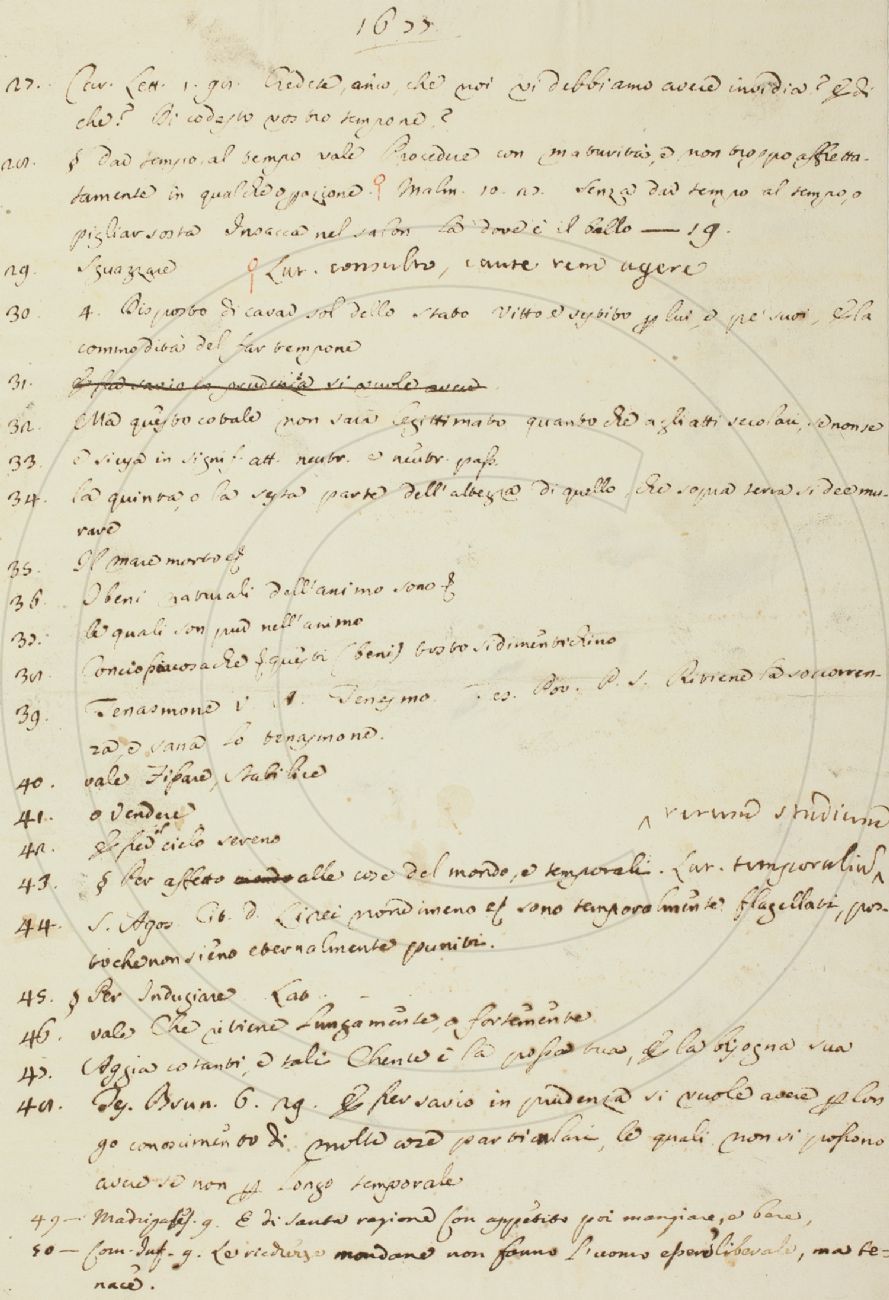 1677
27. Car. Lett. 1. 91. Credete, amo, che noi vi debbiamo avere invidia? E di
che? Di codesto vostro tempone?
28. § Dar tempo al tempo vale Procedere con maturità, e non troppo affretta-
tamente in qualche operazione. Malm. 10. 27. Senza dar tempo al tempo, o
pigliar sosta Insacca nel salon là dov' è il ballo — 19.
29. Sguazzare Lat. consulto, caute rem agere
30. 4. Disposto di cavar sol dello stato Vitto e vestito p lui, e pe' suoi, E la
commodità del far tempone
31. E per savio in prudenzia si vuole avere
32. Ma questo cotale non sarà legittimato quanto che agli atti secolari, se non se
33. e si usa in signif. att. neutr. e neutr. pass.
34. la quinta, o la sesta parte dell' altezza di quello, che sopra terra si dee mu-
rare
35. Il mare morto
36. I beni naturali dell' animo sono
37. le quali son pur nell' animo
38. Conciossiacosachè questi (beni) tosto si dimentichino
39. Tenasmone V. A. Tenesmo. Tes. Pov. P. S. Ritiene la soccorren-
za, e sana lo tenasmone.
40. vale Fissare, Stabilire
41. o Vendere
42. E per il cielo sereno
43. § Per affetto mondo alle cose del mondo, e temporali. Lat. temporalium
rerum studium
44. S. Agos. Cit. D. Li rei nondimeno sono temporalmente flagellati, pos-
to che non sieno eternalmente puniti.
45. § Per Indugiare Lat.
46. vale Che ritiene lungamente, o fortemente
47. Aggia cotanti, e tali Chente è la possa tua, E la bisogna sua
48. Tes. Brun. 6. 29. E per savio in prudenza si vuole avere p lon
go conoscimento di molte cose particolari, le quali non si possono
avere se non p longo temporale
49 — Madrigales. 9. E di santa ragione Con appetito poi mangiare, e bere,
50 — Com. Inf. 9. Le ricchezze mondane non fanno l'uomo essere liberale, ma te=
nace.